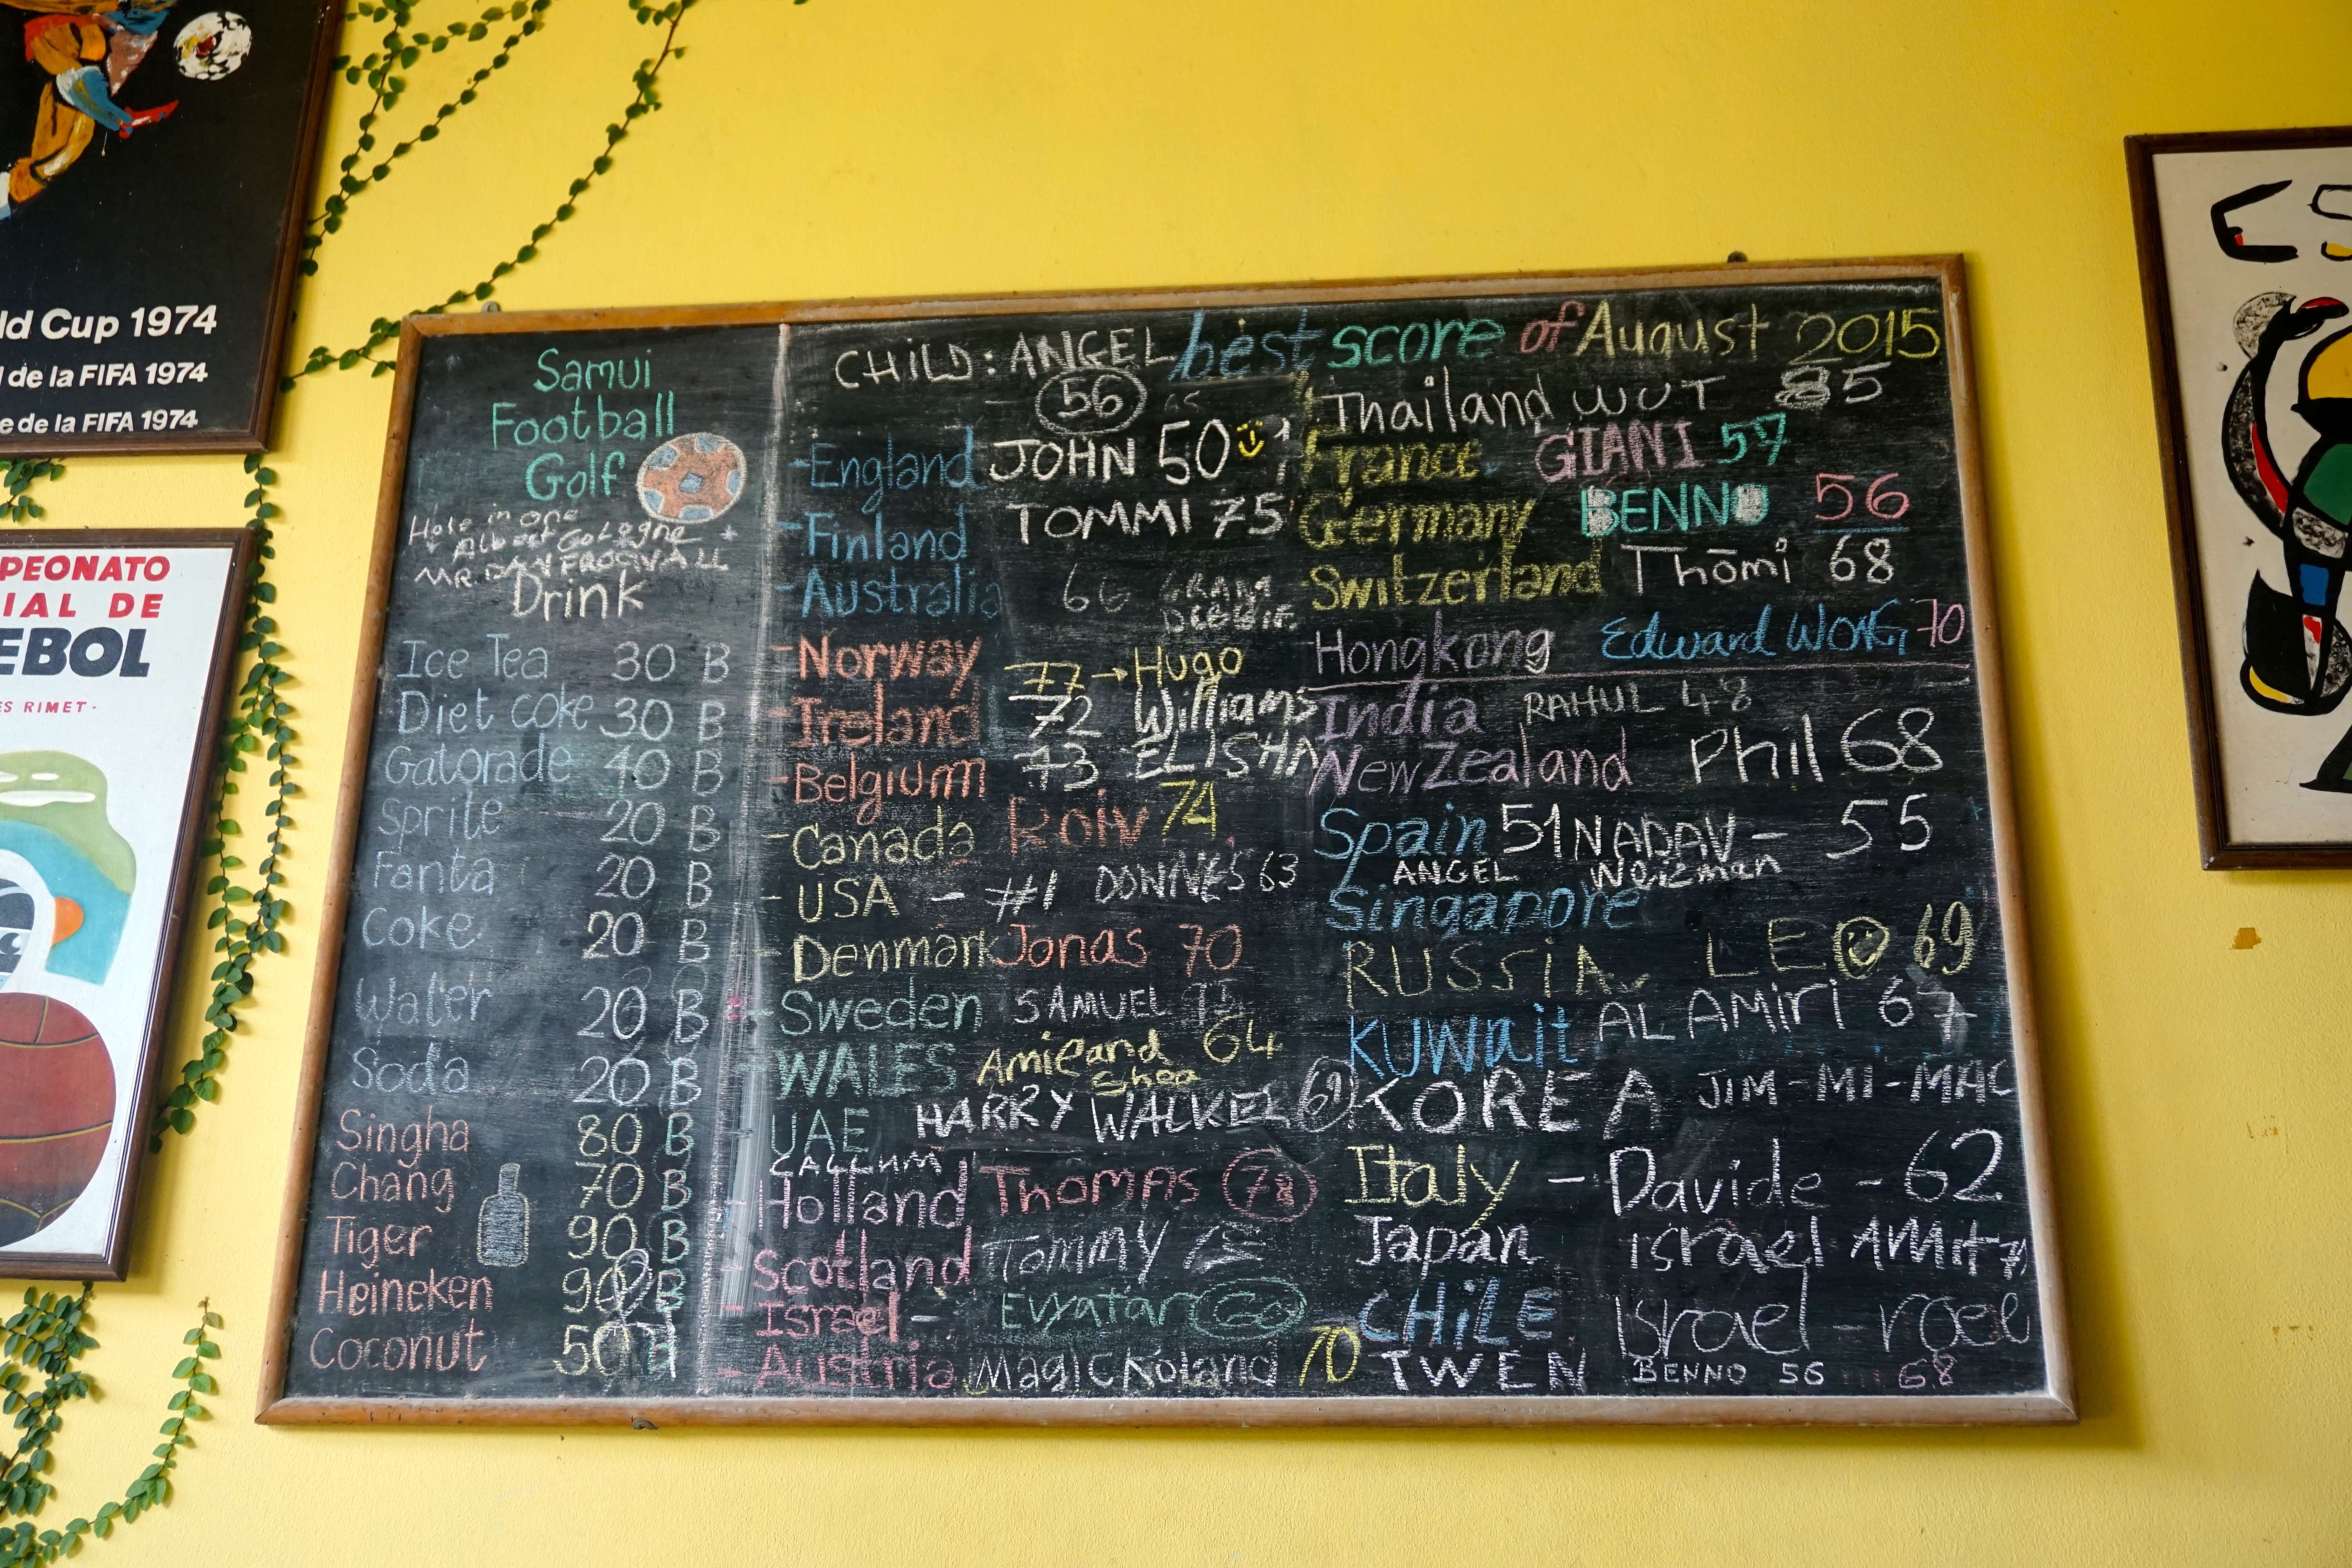 ld Cup 1974
l de la FIFA 1974
e de la FIFA 1974
PEONATO
IAL DE
EBOL
ES RIMET-
Samui
Football
Golf
Hole in one
MR.DAN
Drink
Ice Tea 30 B
Diet coke 30 B
Gatorade 40 B
Sprite 20 B
Fanta 20 B
Coke 20 B
Water 20 B
Soda 20 B
Singha 80 B
Chang 70 B
Tiger 90 B
Heineken 90 B
Coconut 50 B
CHILD: ANGEL best score of August 2015
56
-England JOHN 50
-Finland TOMMI 75
-Australia 66 GRAM
DEBBIE
-Norway 77→Hugo
-Ireland 72 Williams
-Belgium 73 ELISHA
-Canada Roiv 74
-USA - #1 63
-Denmark Jonas 70
-Sweden SAMUEL
-WALES Amie and 64
Shea
-UAE HARRY WALKEL
CALLUM
-Holland THOMAS 78
-Scotland Tommy
-Israel- Evyatar
-Austria Magic Roland 70
Thailand WUT 85
France GIANI 57
Germany BENNO 56
Switzerland Thōmi 68
Hongkong Edward WONG 70
India RAHUL 48
NewZealand Phil 68
Spain 51 NADAV- 55
ANGEL Weizman
Singapore
RUSSiA LEO 69
KUWait AL AMIRI 67
KOREA JIM-MI-MAC
Italy - Davide - 62
Japan israel AMit
CHiLE Israel - roee
TWEN BENNO 56 68